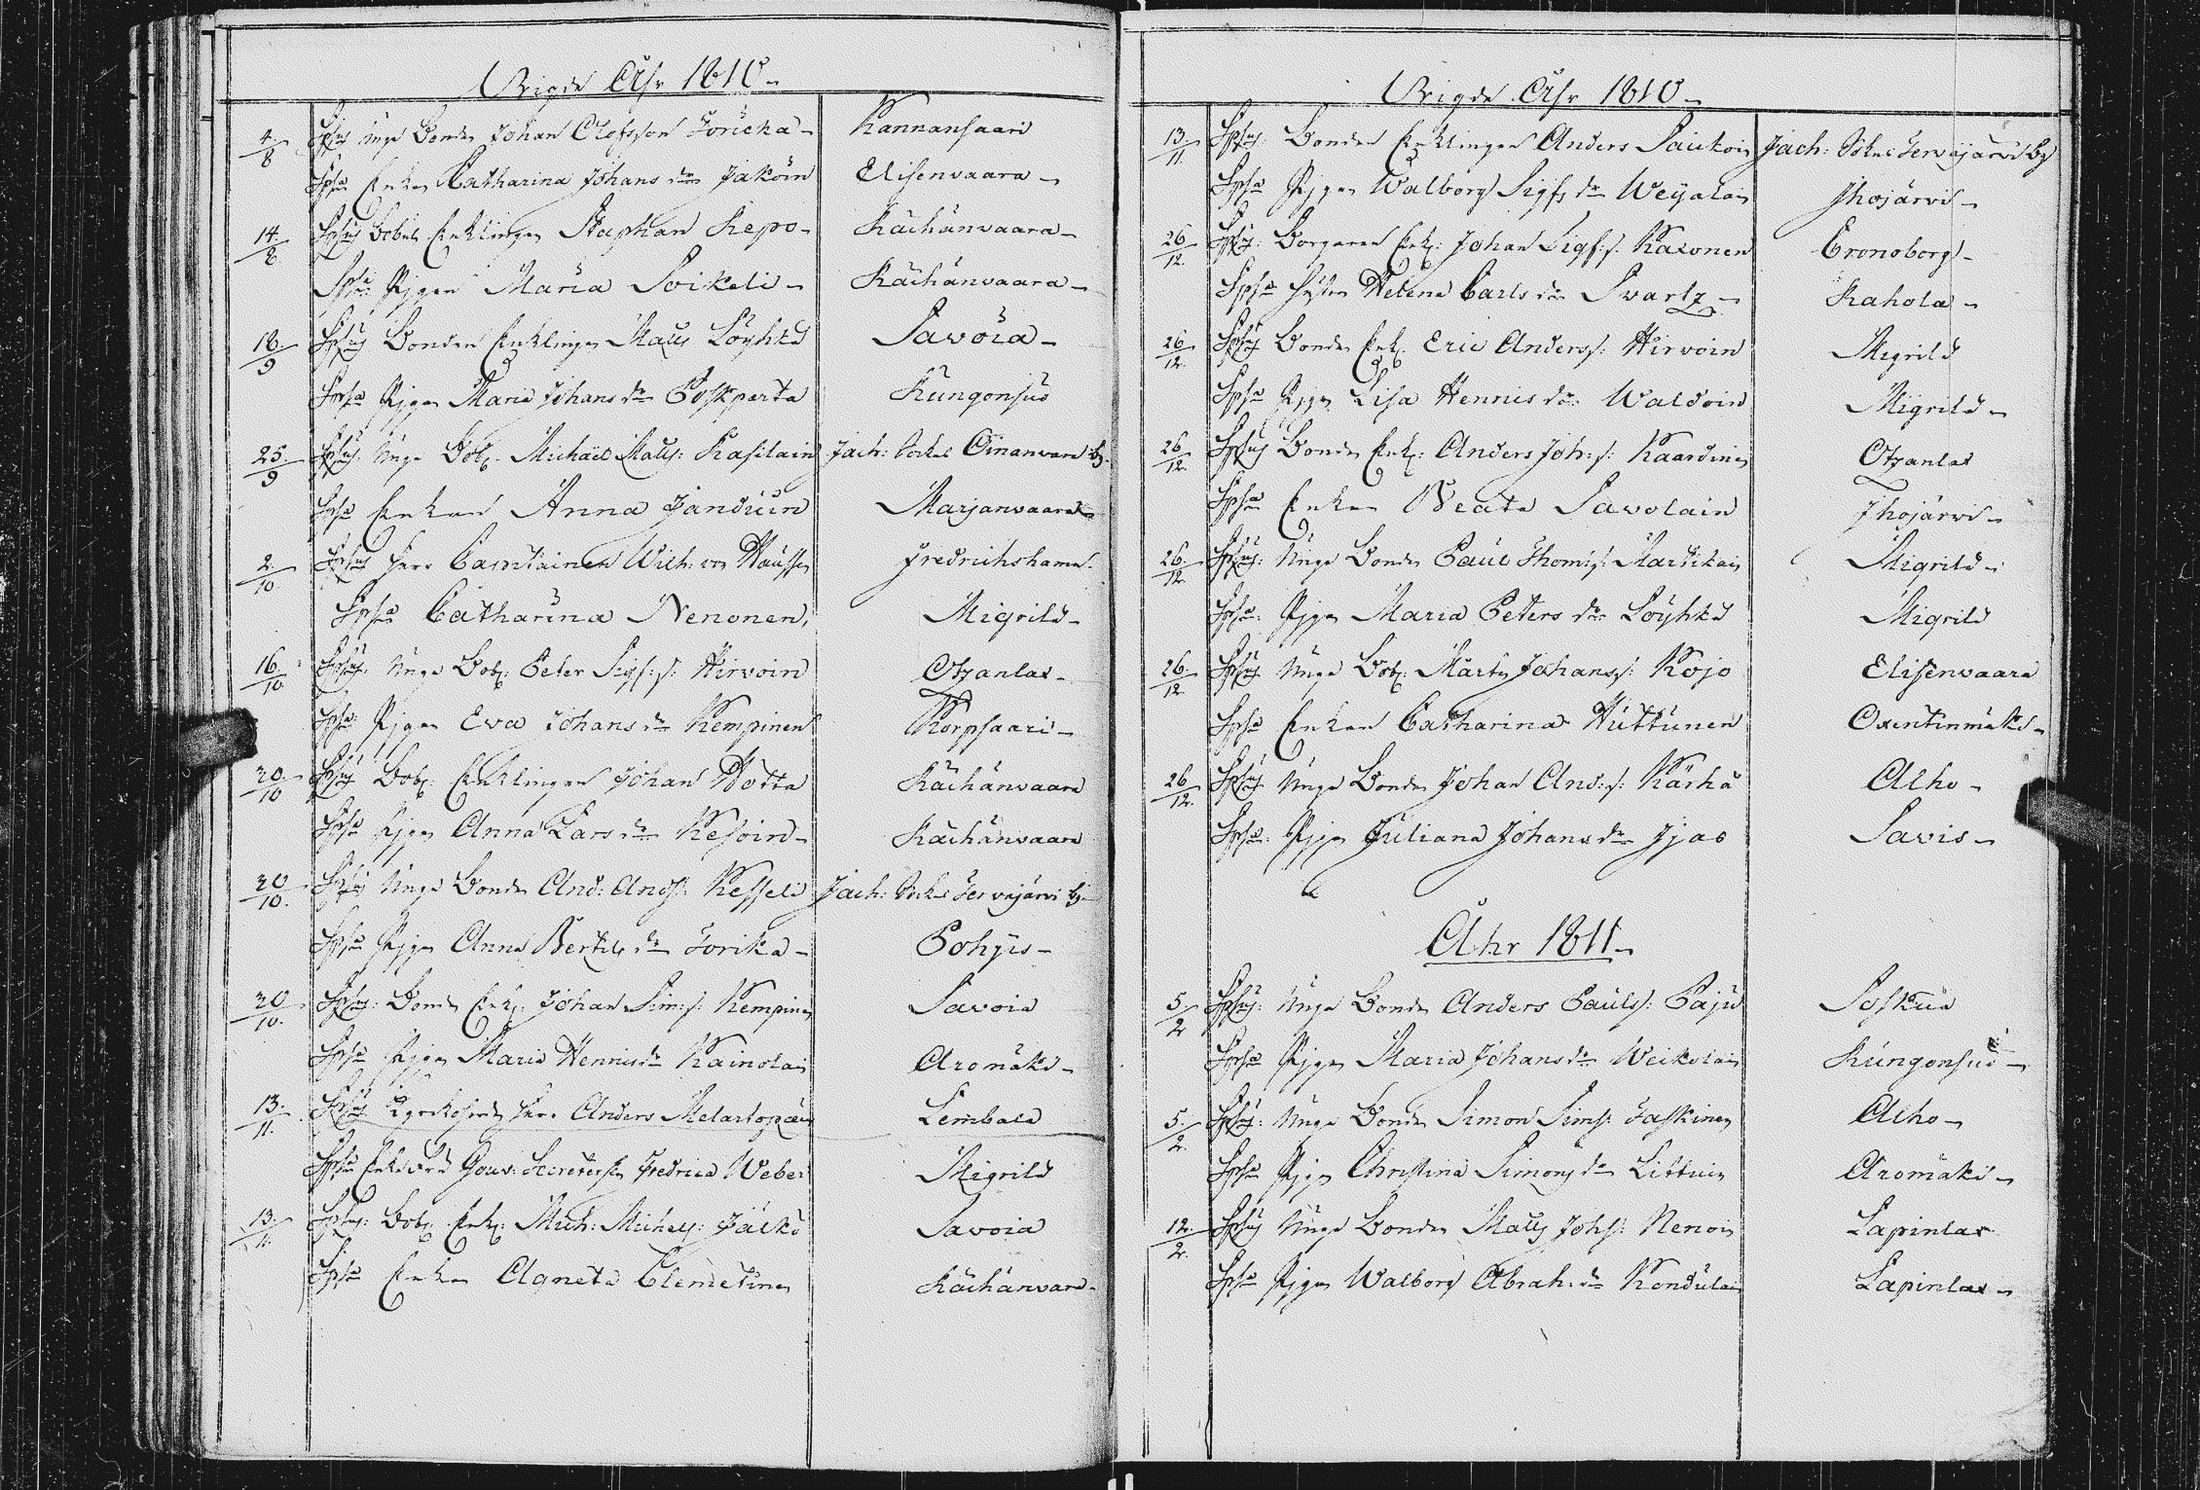 Vigde Åhr 1810
4/8 Spsus Unge Bonden Johan Olofsson Toricka Kannansaari
Spsa Enkan Catharina Johans dr Jakoin Elisenvaara
14/8 Spsus Bobel Enklingen Staphan Repo Kächänvaara
Spsa Pigan Maria Soikeli Kächänvaara
18/9 Spsus Bonden Enklingen Matts Löyhkö Savoia
Spsa Pigan Maria Johans dr Poskparta Kungonsuo
25/9 Spsus Unge Bob. Michäel Matts: Kasilain Jach: Sokn Oinanvara by
Spsa Enkan Anna Janduin Marjanvaara
2/10 Spsus Herr Capitainen Wilh: von Haussen Fredrichshamn
Spsa Catharina Nenonen Migrild
16/10 Spsus Unge Bob. Peter Sigf: s: Hirvoin Otzanlax
Spsa Pigan Eva Johans dr Kempinen Korpsaari
20/10 Spsus Bob. Enklingen Johan Hotta Kächänvaara
Spsa Pigan Anna Lars dr Kesoin Kächänvaara
20/10 Spsus Unge Bonden And: Ands: Kesseli Jach: Sokn Tervajärvi by
Spsa Pigan Anna Bertils dr Torika Pohjis
20/10 Spsus: Bonden Enkl: Johan Sim: s: Kempinen Savoia
Spsa Pigan Maria Hennis dr Kainolain Aromäki
13/11 Spsus Herr Anders Melartopæus Lembala
Spsa Enkan Gouv: Secreters: Fredrica Weber Migrild
13/11 Spsus: Bob. Enkl: Mich: Michels: Jälkö Savoia
Spsa Enkan Agneta Clemetinen Kächänvara
Vigde Åhr 1810
13/11 Spsus: Bonden Enklingen Anders Saukoin Jach: Sokn Tervajärvi by
Spsa Pigan Walborg Sigfs dr Weijalain Ihojärvi
26/12 Spsus: Borgaren Enkl: Johan Sigf: s: Kaxonen Cronoborg
Spsa Helena Carls dr Svartz Rahola
26/12 Spsus Bonden Enkl. Eric Anders s: Hirvoin Migrild
Spsa Pigan Lisa Hennis dr Waldoin Migrild
26/12 Spsus Bonden Enkl: Anders Joh: s: Kaardinen Otzanlax
Spsa Enkan Beata Savolain Ihojärvi
26/12 Spsus: Unge Bonden Paul Thoms: Martikain Migrild
Spsa: Pigan Maria Peters dr Löyhkö Migrild
26/12 Spsus Unge Bob. Mårten Johans s: Kojo Elisenvaara
Spsa Enkan Catharina Huttunen Oxentinmäki
26/12 Spsus Unge Bonden Johan And: s: Kärhä Alho
Spsa: Pigan Juliana Johans dr Ijas Savis
Åhr 1811
5/2 Spsus: Unge Bonden Anders Pauls: Paju Soskua
Spsa Pigan Maria Johans dr Weikolain Kungonsuo
5/2 Spsus: Unge Bonden Simon Sims: Jaskinen Alho
Spsa Pigan Christina Simons dr Littuin Aromäki
12/2 Spsus Unge Bonden Matts Johs: Nenoin Lapinlax
Spsa Pigan Walborg Abrah: dr Kondulain Lapinlax